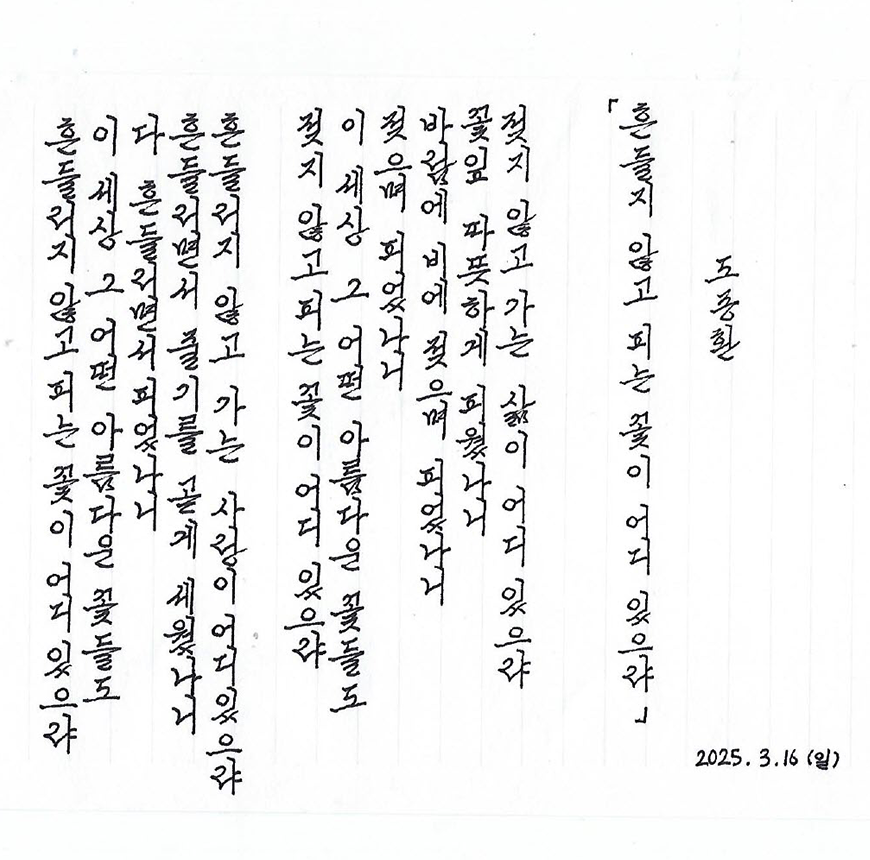 흔들리지 않고 피는 꽃이 어디 있으랴
이 세상 그 어떤 아름다운 꽃들도
다 흔들리면서 피었나니
흔들리면서 줄기를 곧게 세웠나니
흔들리지 않고 가는 사랑이 어디 있으랴
젖지 않고 피는 꽃이 어디 있으랴
이 세상 그 어떤 아름다운 꽃들도
젖으며 피었나니
바람에 비에 젖으며 피었나니
꽃잎 따뜻하게 피웠나니
젖지 않고 가는 삶이 어디 있으랴
「흔들지 않고 피는 꽃이 어디 있으랴」
도종환
2025. 3. 16 (일)